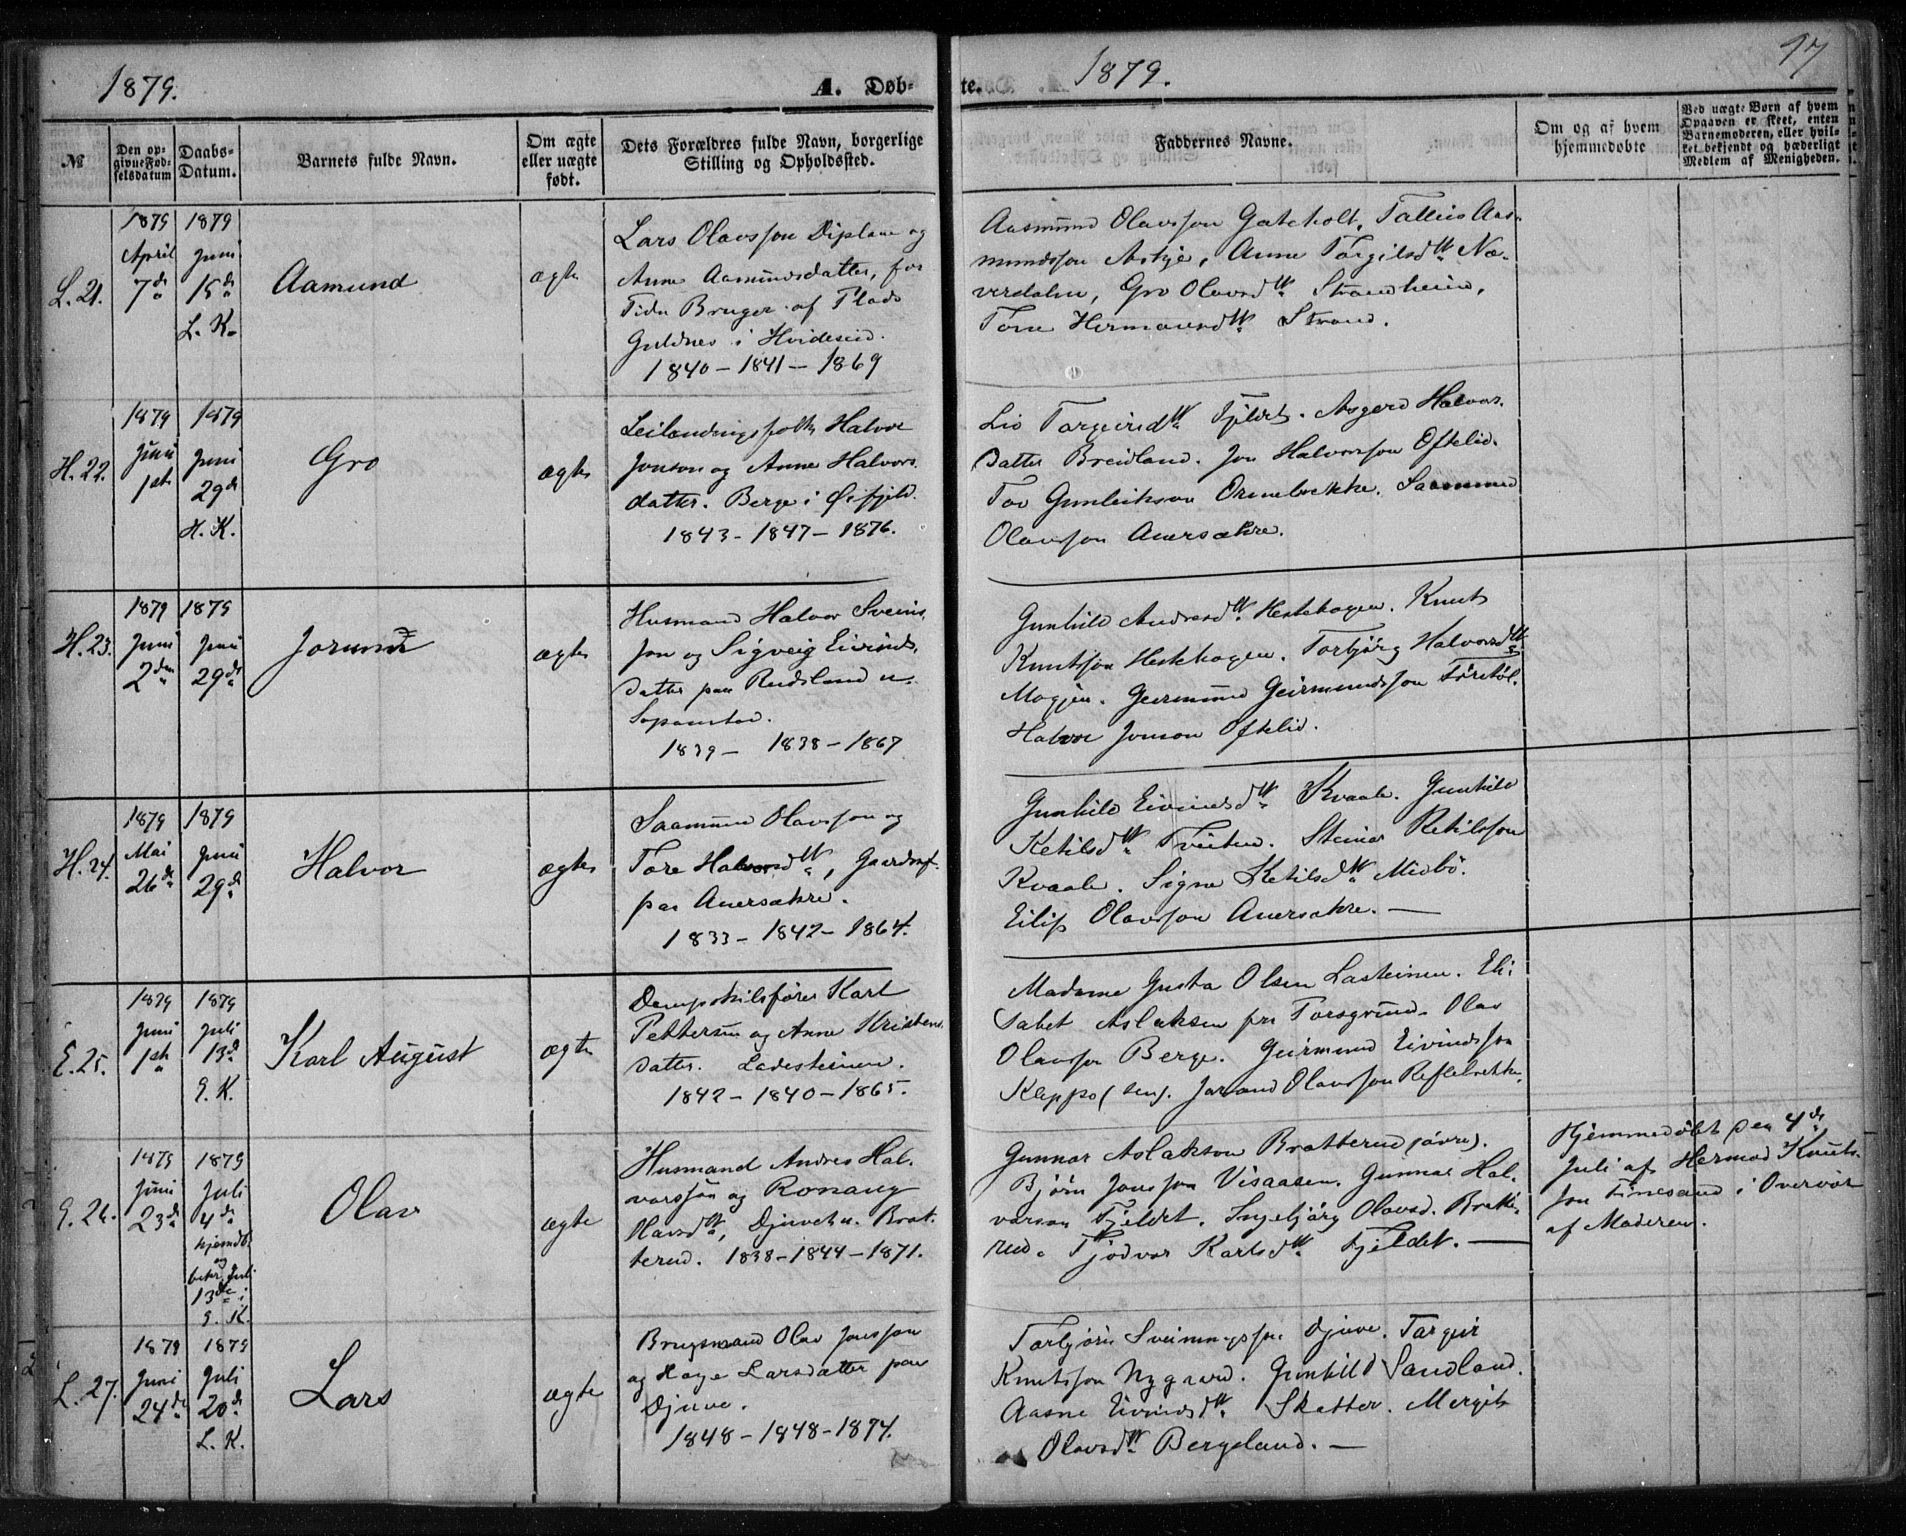 1879.
A. Døb-
te.
1879.
97
№
Den op-
givne Fød-
selsdatum
Daabs-
Datum.
Barnets fulde Navn.
Om ægte
eller uægte
født.
Dets Forældres fulde Navn, borgerlige
Stilling og Opholdssted.
Faddernes Navne.
Om og af hvem
hjemmedøbte
Ved uægte Børn af hvem
Opgaven er skeet, enten
Barnemoderen, eller hvil-
ket bekjendt og hæderligt
Medlem af Menigheden.
L. 21.
1879
April
7de
1879
Juni
15de
L. K.
Aamund
ægte
Lars Olavsson Diplane og
Anne Aamundsdatter, for
Tiden Bruger af Plads
Guldnes i Hvideseid.
1840 - 1841 - 1869
Aasmund Olavsson Gateholt, Talleiv Aas-
mundsson Askje, Anne Torgilsdtr Næ-
verdalen, Gro Olavsdtr Strandheim,
Tone Hermansdtr Strand.
H. 22.
1879
Juni
1ste
1879
Juni
29de
H. K.
Gro
ægte
Leilændingsfolk Halvor
Jonson og Anne Halvors-
datter. Berge i Øifjeld.
1843 - 1847 - 1876.
Liv Torgeirsdtr Fjeldet. Asgerd Halvors-
datter Breidland. Jon Halvorsson Oftelid.
Tov Gunleikson Ormebrekke. Saamund
Olavsson Auersakre.
H. 23.
1879
Juni
2den
1879
Juni
29de
Jorund
ægte
Husmand Halvor Sveins-
son og Sigveig Eivinds-
datter paa Rudsland u.
1839 - 1838 - 1867
Gunhild Andresdtr Hestehagen. Knut
Knutsson Hestehagen. Torbjørg Halvorsdtr
Mogjen. Geirmund Geirmundsson
Halvor Jonson Oftelid.
H. 24.
1879
Mai
26de
1879
Juni
29de
Halvor
ægte
Saamund Olavsson og
Tore Halvorsdtr, Gaardmf.
paa Auersakre.
1833 - 1842 - 1864.
Gunhild Eivindsdtr Kvaale. Gunhild
Ketilsdtr Tveiten. Steinar Ketilsson
Kvaale. Signe Ketilsdtr Midbø.
Eilif Olavsson Auersakre. —
E. 25.
1879
Juni
1ste
1879
Juli
13de
E. K.
Karl August
ægte
Dampskibsfører Karl
Pettersen og Anne Kristens-
datter. Ladesteinen.
1842 - 1840 - 1865.
Madame Gusta Olsen Lasteinen. Eli-
sabet Aslaksen fra Porsgrund. Olav
Olavsson Berge. Geirmund Eivindsson
Kleppo (sen). Jorand Olavsson
E. 26.
1879
Juni
23de
1879
Juli
4de
hjemdbt.
og
bekr. Juli
13de i
E. K.
Olav
ægte
Husmand Andres Hal-
vorsson og Ronaug
Olavsdtr, Djuvet u. Brat-
terud. 1838 - 1844 - 1871.
Gunnar Aslakson Bratterud (øvre).
Bjørn Jonsson Visaasen. Gunnar Hal-
vorson Fjeldet. Ingebjørg Olavsd. Bratte-
rud. Tjødvor Karlsdtr Fjeldet. —
Hjemmedøbt den 4de
Juli af Hermod Knuts-
son Finesand i Overvær
af Moderen.
L. 27.
1879
Juni
24de
1879
Juli
20de
L. K.
Lars
ægte
Brugsmand Olav Jonsson
og Hæge Larsdatter paa
Djuve.
1848 - 1848 - 1874.
Torbjørn Sveinungsson Djuve. Torgeir
Knutsson Nygaard. Gunhild Sandland.
Aasne Eivindsdtr Skatter. Mergit
Olavsdtr Bergeland. —